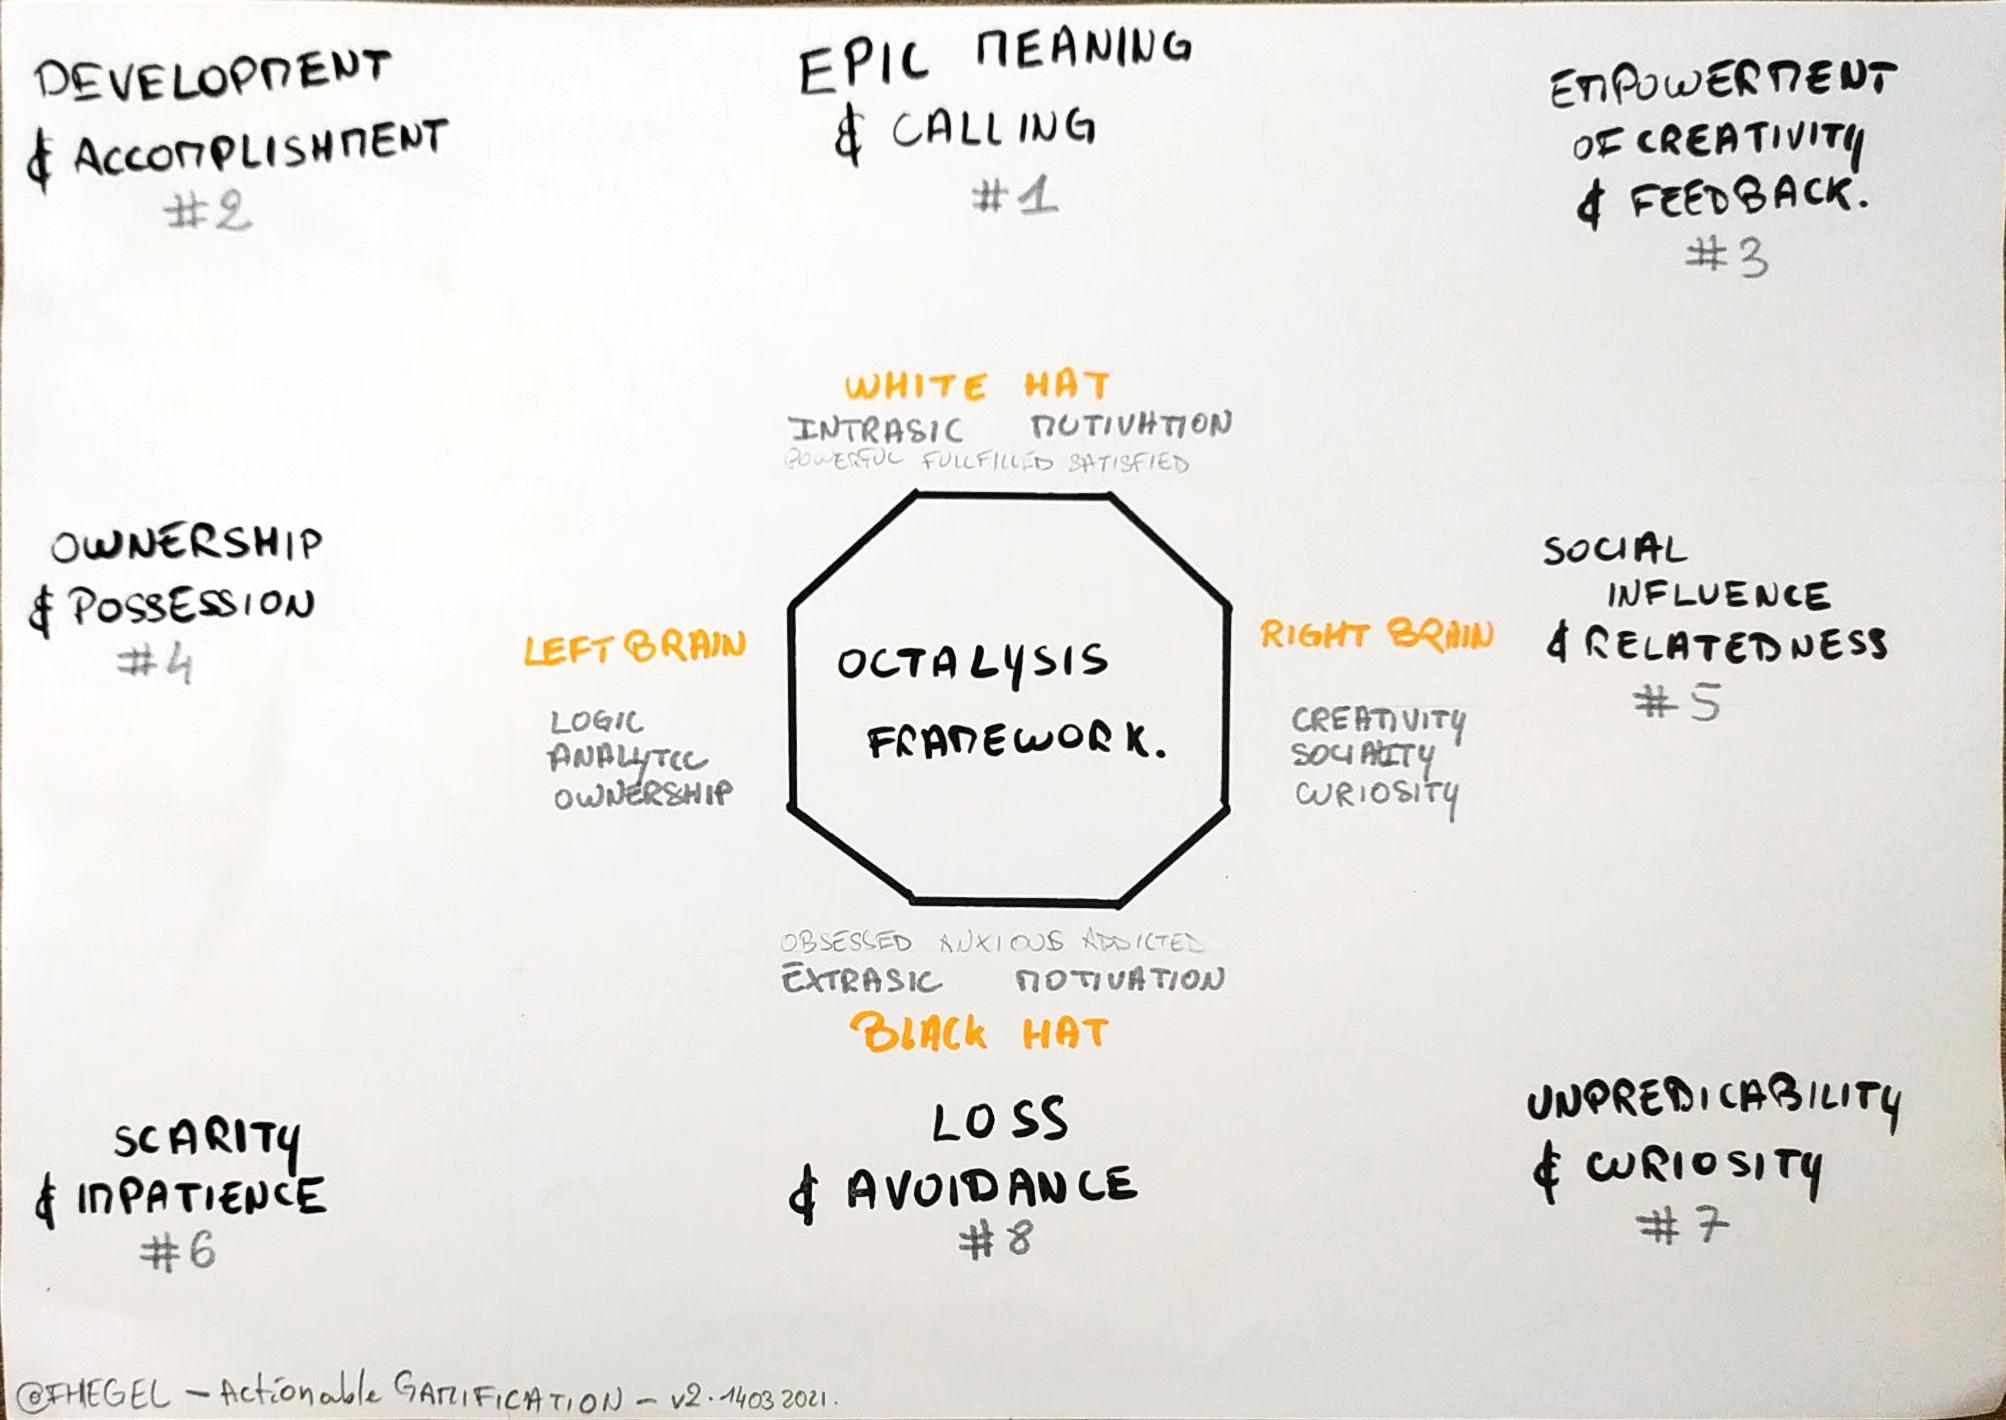 DEVELOPMENT
& ACCOMPLISHMENT
#2
EPIC MEANING
& CALLING
#1
EMPOWERMENT
OF CREATIVITY
& FEEDBACK.
#3
WHITE HAT
INTRASIC MOTIVATION
POWERFUL FULLFILLED SATISFIED
OWNERSHIP
& POSSESSION
#4
LEFT BRAIN
LOGIC
ANALYTCC
OWNERSHIP
OCTALYSIS
FRAMEWORK.
RIGHT BRAIN
CREATIVITY
SOCIALITY
CURIOSITY
SOCIAL
INFLUENCE
& RELATEDNESS
#5
OBSESSED ANXIOUS ADDICTED
EXTRASIC MOTIVATION
BLACK HAT
SCARITY
& IMPATIENCE
#6
LOSS
& AVOIDANCE
#8
UNPREDICABILITY
& CURIOSITY
#7
@FHEGEL - Actionable GAMIFICATION - v2.14032021.